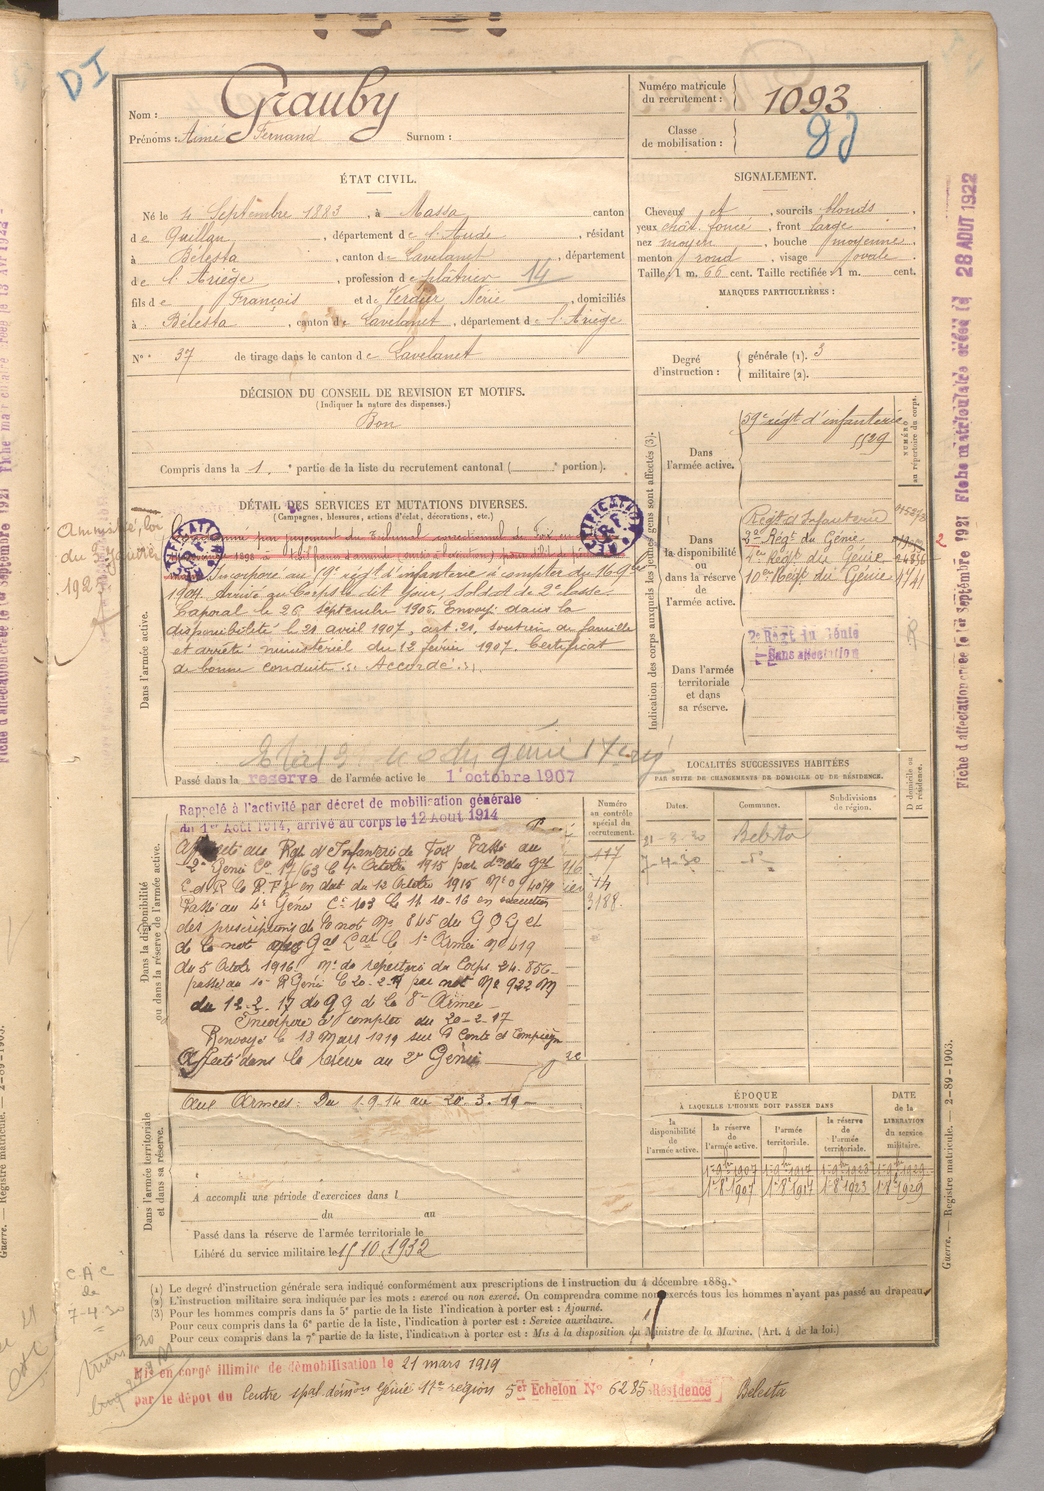 DI
Nom : Grauby
Prénoms : Aimé Fernand Surnom :
Numéro matricule du recrutement : 1093
Classe de mobilisation :
ÉTAT CIVIL.
Né le 4 Septembre 1883, à Massa canton
de Quillan, département de l'Aude, résidant
à Bélesta, canton de Lavelanet, département
de l'Ariège, profession de plâtrier 14
fils de François et de Verdier Nérie, domiciliés
à Bélesta, canton de Lavelanet, département de l'Ariège
N° 37 de tirage dans le canton de Lavelanet
SIGNALEMENT.
Cheveux et, sourcils blonds,
yeux chât. foncé, front large,
nez moyen, bouche moyenne,
menton rond, visage ovale.
Taille : 1 m. 66 cent. Taille rectifiée : 1 m. cent.
MARQUES PARTICULIÈRES :
Degré d'instruction : générale (1). 3
militaire (2).
DÉCISION DU CONSEIL DE REVISION ET MOTIFS.
(Indiquer la nature des dispenses.)
Bon
Compris dans la 1. e partie de la liste du recrutement cantonal ( e portion).
DÉTAIL DES SERVICES ET MUTATIONS DIVERSES.
(Campagnes, blessures, actions d'éclat, décorations, etc.)
RECTIFICATION
R.F.
RECTIFICATION
R.F.
par jugement du Tribunal correctionnel de Foix
Incorporé au 59e régt d'infanterie à compter du 16 9bre
1904. Arrivé au Corps le dit jour, Soldat de 2e classe.
Caporal le 26 septembre 1905. Envoyé dans la
disponibilité le 21 avril 1907, art. 21, soutien de famille
et arrêté ministériel du 12 février 1907. Certificat
de bonne conduite : Accordé.
Dans l'armée active.
Passé dans la réserve de l'armée active le 1 octobre 1907
Indication des corps auxquels les jeunes gens sont affectés (3).
NUMÉRO au répertoire du corps.
Dans l'armée active.
59e régt d'infanterie
5529
Dans la disponibilité ou dans la réserve de l'armée active.
Régt d'Infanterie
2e Régt du Génie
4e Régt du Génie 24856
10e Régt du Génie 4741
2
Dans l'armée territoriale et dans sa réserve.
2e Régt du Génie
Sans affectation
LOCALITÉS SUCCESSIVES HABITÉES
PAR SUITE DE CHANGEMENTS DE DOMICILE OU DE RÉSIDENCE.
Dates. Communes. Subdivisions de région. D domicile ou R résidence.
21-3-30 Belesta
7-4-30
Dans la disponibilité ou dans la réserve de l'armée active.
Numéro au contrôle spécial du recrutement.
117
14
3188
Rappelé à l'activité par décret de mobilisation générale
du 1er Août 1914, arrivé au corps le 12 Août 1914
Affecté au Rgt d'Infanterie de Foix Passé au
2e Génie Cie 17/63 le 4 Octobre 1915 par don du gal
en dat du 12 Octobre 1915 No 4079
Passé au 4e Génie Cie 103 le 11-10-16 en exécution
des prescriptions de la note No 845 du G Q G et
de la note No 419
du 5 Octobre 1916. No de répertoire du Corps 24.856
passé au 10e R Génie le 20-2-17 par note No 922 M
du 12-2-17 du QG de la 8e Armée
Incorporé à compter du 20-2-17
Renvoyé le 13 Mars 1919 sur D
Affecté dans la réserve au 2e Génie
Aux Armées : Du 1-9-14 au 20-3-19
Dans l'armée territoriale et dans sa réserve.
A accompli une période d'exercices dans l
du au
Passé dans la réserve de l'armée territoriale le
Libéré du service militaire le 15 10 1932
ÉPOQUE
À LAQUELLE L'HOMME DOIT PASSER DANS
la disponibilité de l'armée active.
la réserve de l'armée active.
l'armée territoriale.
la réserve de l'armée territoriale.
DATE de la LIBÉRATION du service militaire.
1-9bre 1907 1-9bre 1917 1-9bre 1923 1-9bre 1929
1-8bre 1907 1-8bre 1917 1-8bre 1923 1-8bre 1929
(1) Le degré d'instruction générale sera indiqué conformément aux prescriptions de l'instruction du 4 décembre 1889.
(2) L'instruction militaire sera indiquée par les mots : exercé ou non exercé. On comprendra comme non exercés tous les hommes n'ayant pas passé au drapeau.
(3) Pour les hommes compris dans la 5e partie de la liste l'indication à porter est : Ajourné.
Pour ceux compris dans la 6e partie de la liste, l'indication à porter est : Service auxiliaire.
Pour ceux compris dans la 7e partie de la liste, l'indication à porter est : Mis à la disposition du Ministre de la Marine. (Art. 4 de la loi.)
Mis en congé illimité de démobilisation le 21 mars 1919
par le dépôt du Centre spal démon Génie 17e région 5er Echelon No 6285 Résidence Belesta
C A C
de
7-4-30
Fiche d'affectation créée le 1er Septembre 1921 Fiche matriculaire créée le 28 AOUT 1922
Guerre. — Registre matricule. — 2-89-1903.
Guerre. — Registre matricule. — 2-89-1903.